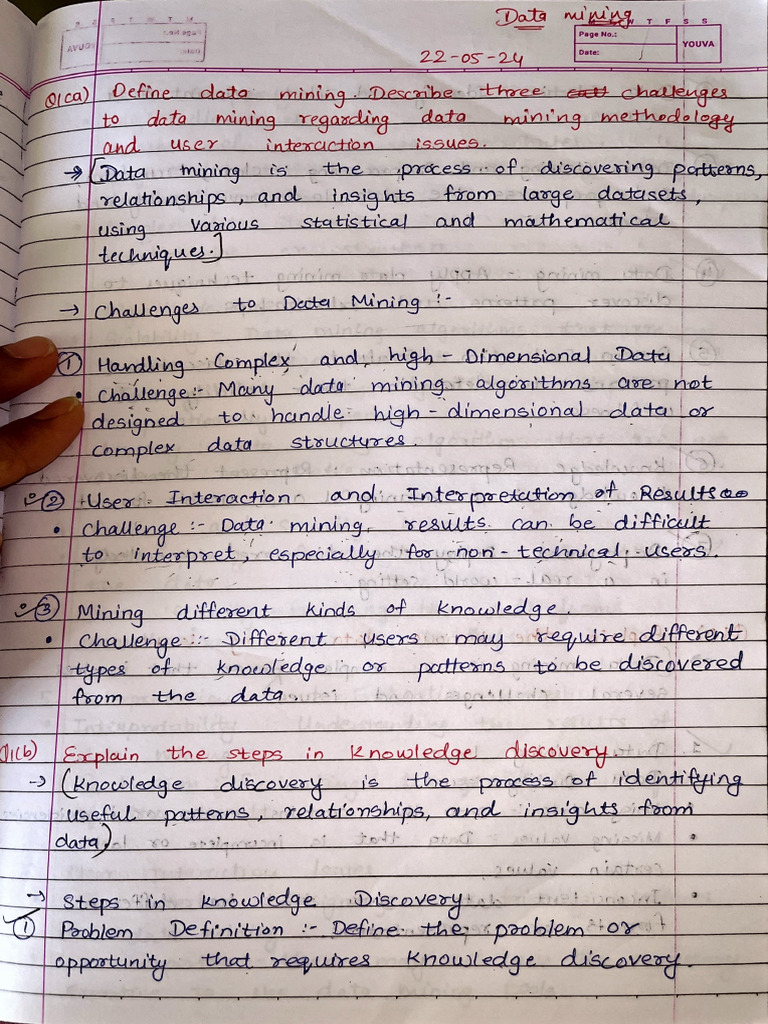 Data mining
M T W T F S S
Page No.:
Date:
YOUVA
22-05-24
Q1(a) Define data mining. Describe three challenges
to data mining regarding data mining methodology
and user interaction issues.
→ [Data mining is the process of discovering patterns,
relationships, and insights from large datasets,
using various statistical and mathematical
techniques.]
→ Challenges to Data Mining :-
① Handling Complex and high-Dimensional Data
• Challenge:- Many data mining algorithms are not
designed to handle high-dimensional data or
complex data structures.
② User Interaction and Interpretation of Results
• Challenge :- Data mining results can be difficult
to interpret, especially for non-technical users.
③ Mining different kinds of knowledge.
• Challenge :- Different users may require different
types of knowledge or patterns to be discovered
from the data.
Q1(b) Explain the steps in knowledge discovery.
→ (Knowledge discovery is the process of identifying
useful patterns, relationships, and insights from
data)
→ Steps in knowledge Discovery
① Problem Definition :- Define the problem or
opportunity that requires knowledge discovery.